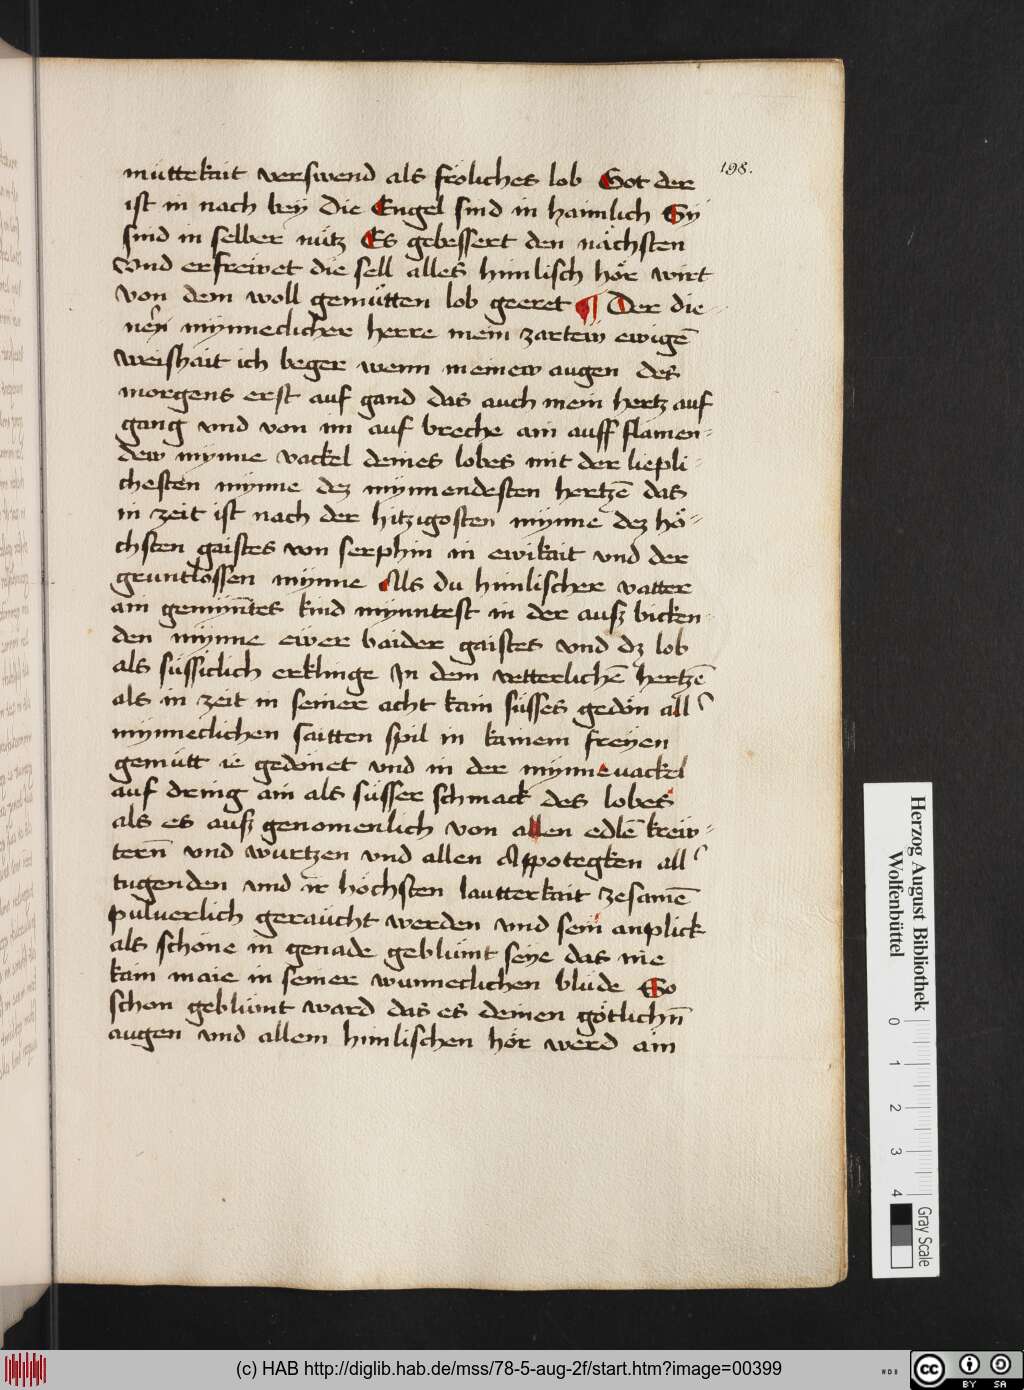 198.
müttekait verswend als fröliches lob Got der
ist in nach bey die Engel sind in haimlich Sy
sind in selber nütz Es gebessert den nächsten
Vnd erfreiwet die sell alles himlisch hör wirt
von dem woll gemütten lob geeret ¶ Der die-
nerı mynneclicher herre mein zartew ewigē
weishait ich beger wenn meinew augen des
morgens erst auf gand das auch mein hertz auf
gang vnd von im auf breche ain auff flamen-
dew mynne vackel deines lobes mit der liepli-
chesten mynne dez mynnendesten hertzē das
in zeit ist nach der hitzigosten mynne dez hö-
chsten gaistes von serphin in ewikait vnd der
gruntlossen mynne Als du himlischer vatter
ain gemyntes kind mynntest in der ausz bicken-
den mynne ewer baider gaistes vnd dz lob
als süssiclich erklinge In dem vetterlichē hertzē
als in zeit in seiner acht kain süsses gedön all
mynneclichen saitten spil in kainem freyen
gemütt ie gedönet vnd in der mynne vackel
auf dring ain als süsser schmack des lobes
als es ausz genomenlich von allen edlē kreiw-
tern vnd wurtzen vnd allen Appotegken all
tugenden vnd ir höchsten lautterkait zesamē
puluerlich geraücht werden vnd sein anplick
als schöne in genade geblümt seye das nie
kain maie in seiner wunneclichen blüde So
schon geblümt ward das es deinen götlichn̄
augen vnd allem himlischen hör werd ain
Herzog August Bibliothek
Wolfenbüttel
0 1 2 3 4
Gray Scale
(c) HAB http://diglib.hab.de/mss/78-5-aug-2f/start.htm?image=00399
WDB
cc BY SA